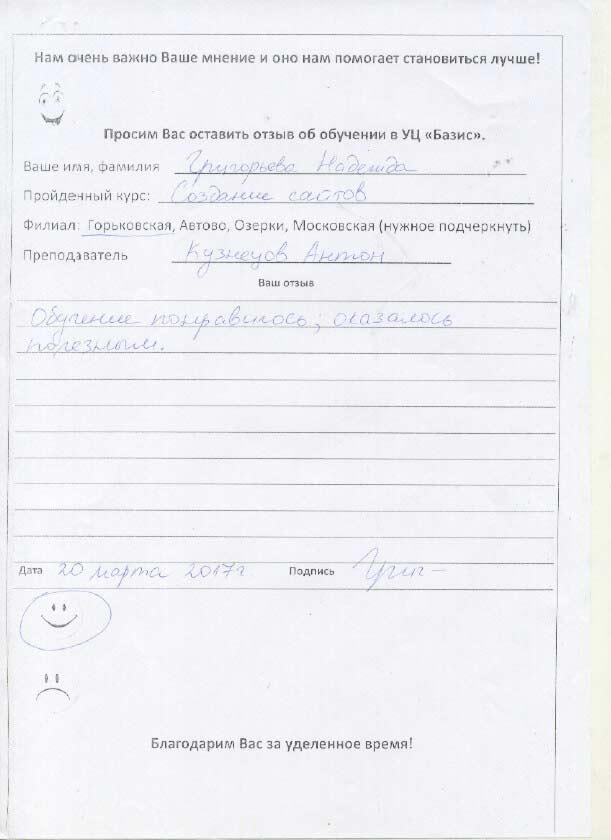 Нам очень важно Ваше мнение и оно нам помогает становиться лучше!
Просим Вас оставить отзыв об обучении в УЦ «Базис».
Ваше имя, фамилия Григорьева Надежда
Пройденный курс: Создание сайтов
Филиал: Горьковская, Автово, Озерки, Московская (нужное подчеркнуть)
Преподаватель Кузнецов Антон
Ваш отзыв
Обучение понравилось, оказалось
полезным.
Дата 20 марта 2017г Подпись Григ
Благодарим Вас за уделенное время!